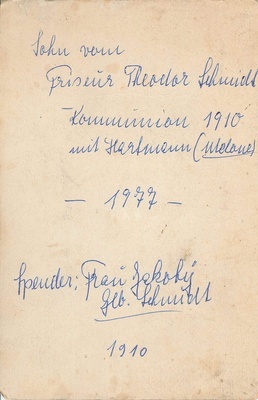 Sohn vom
Friseur Theodor Schmidt
Kommunion 1910
mit Hartmann
— 1977 —
Spender: Frau Jakoby
Geb. Schmidt
1910